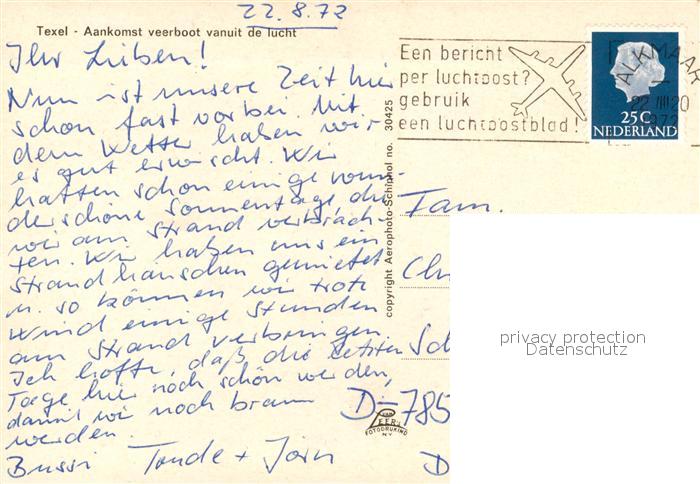 22.8.72
Texel - Aankomst veerboot vanuit de lucht
Ihr Lieben!
Nun ist unsere Zeit hier
schon fast vorbei. Mit
dem Wetter haben wir
es gut erwischt. Wir
hatten schon einige wun-
derschöne Sonnentage, die
wir am Strand verbrach-
ten. Wir haben uns ein
Strandhäuschen gemietet
u. so können wir trotz
Wind einige Stunden
am Strand verbringen.
Ich hoffe, daß die letzten
Tage hier noch schön werden,
damit wir noch braun
werden.
Bussi Tonde + Jörn
copyright Aerophoto-Schiphol no. 30425
Een bericht
per luchtpost?
gebruik
een luchtpostblad!
ALKMAAR
22 VIII 20
1972
25C
NEDERLAND
Fam.
Ch
Sch
D-785
D
VAN
LEER'S
FOTODRUKIND
N.V.
privacy protection
Datenschutz